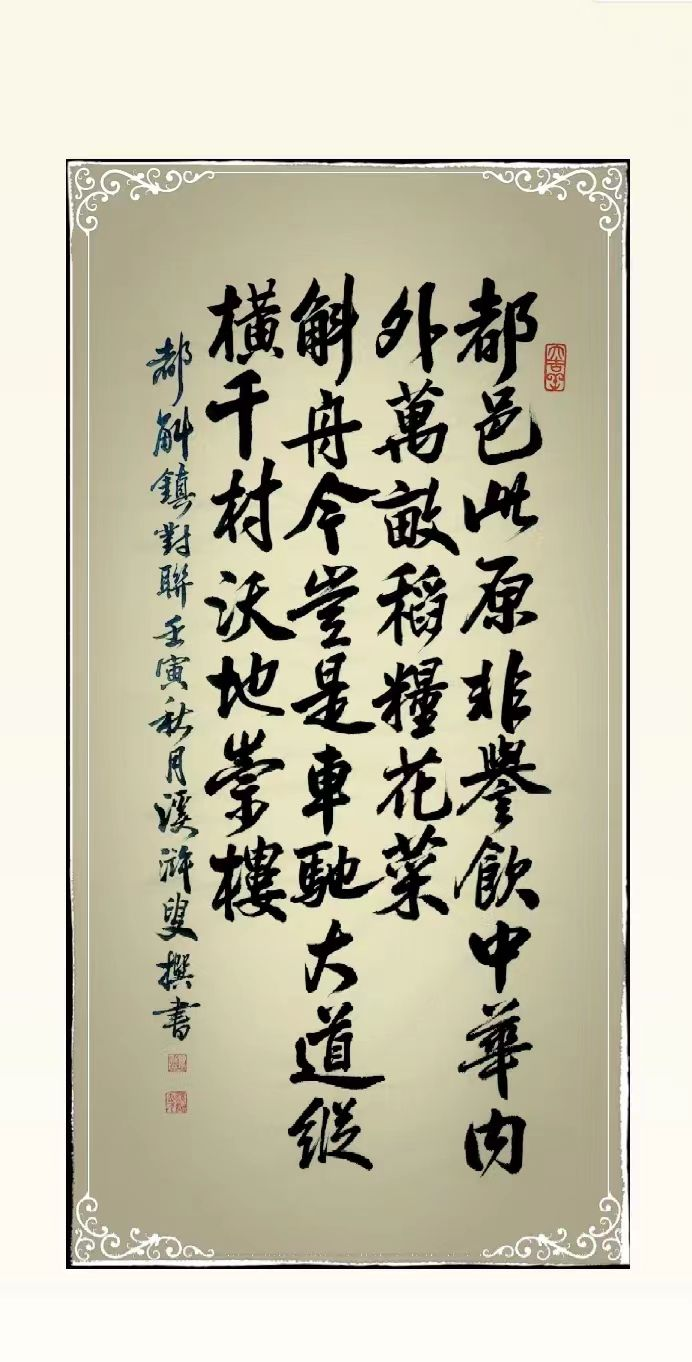 都邑此原非譽飲中華内
外萬畝稻糧花菜
斛舟今豈是車馳大道縱
橫千村沃地崇樓
都斛鎮對聯壬寅秋月溪滸叟撰書